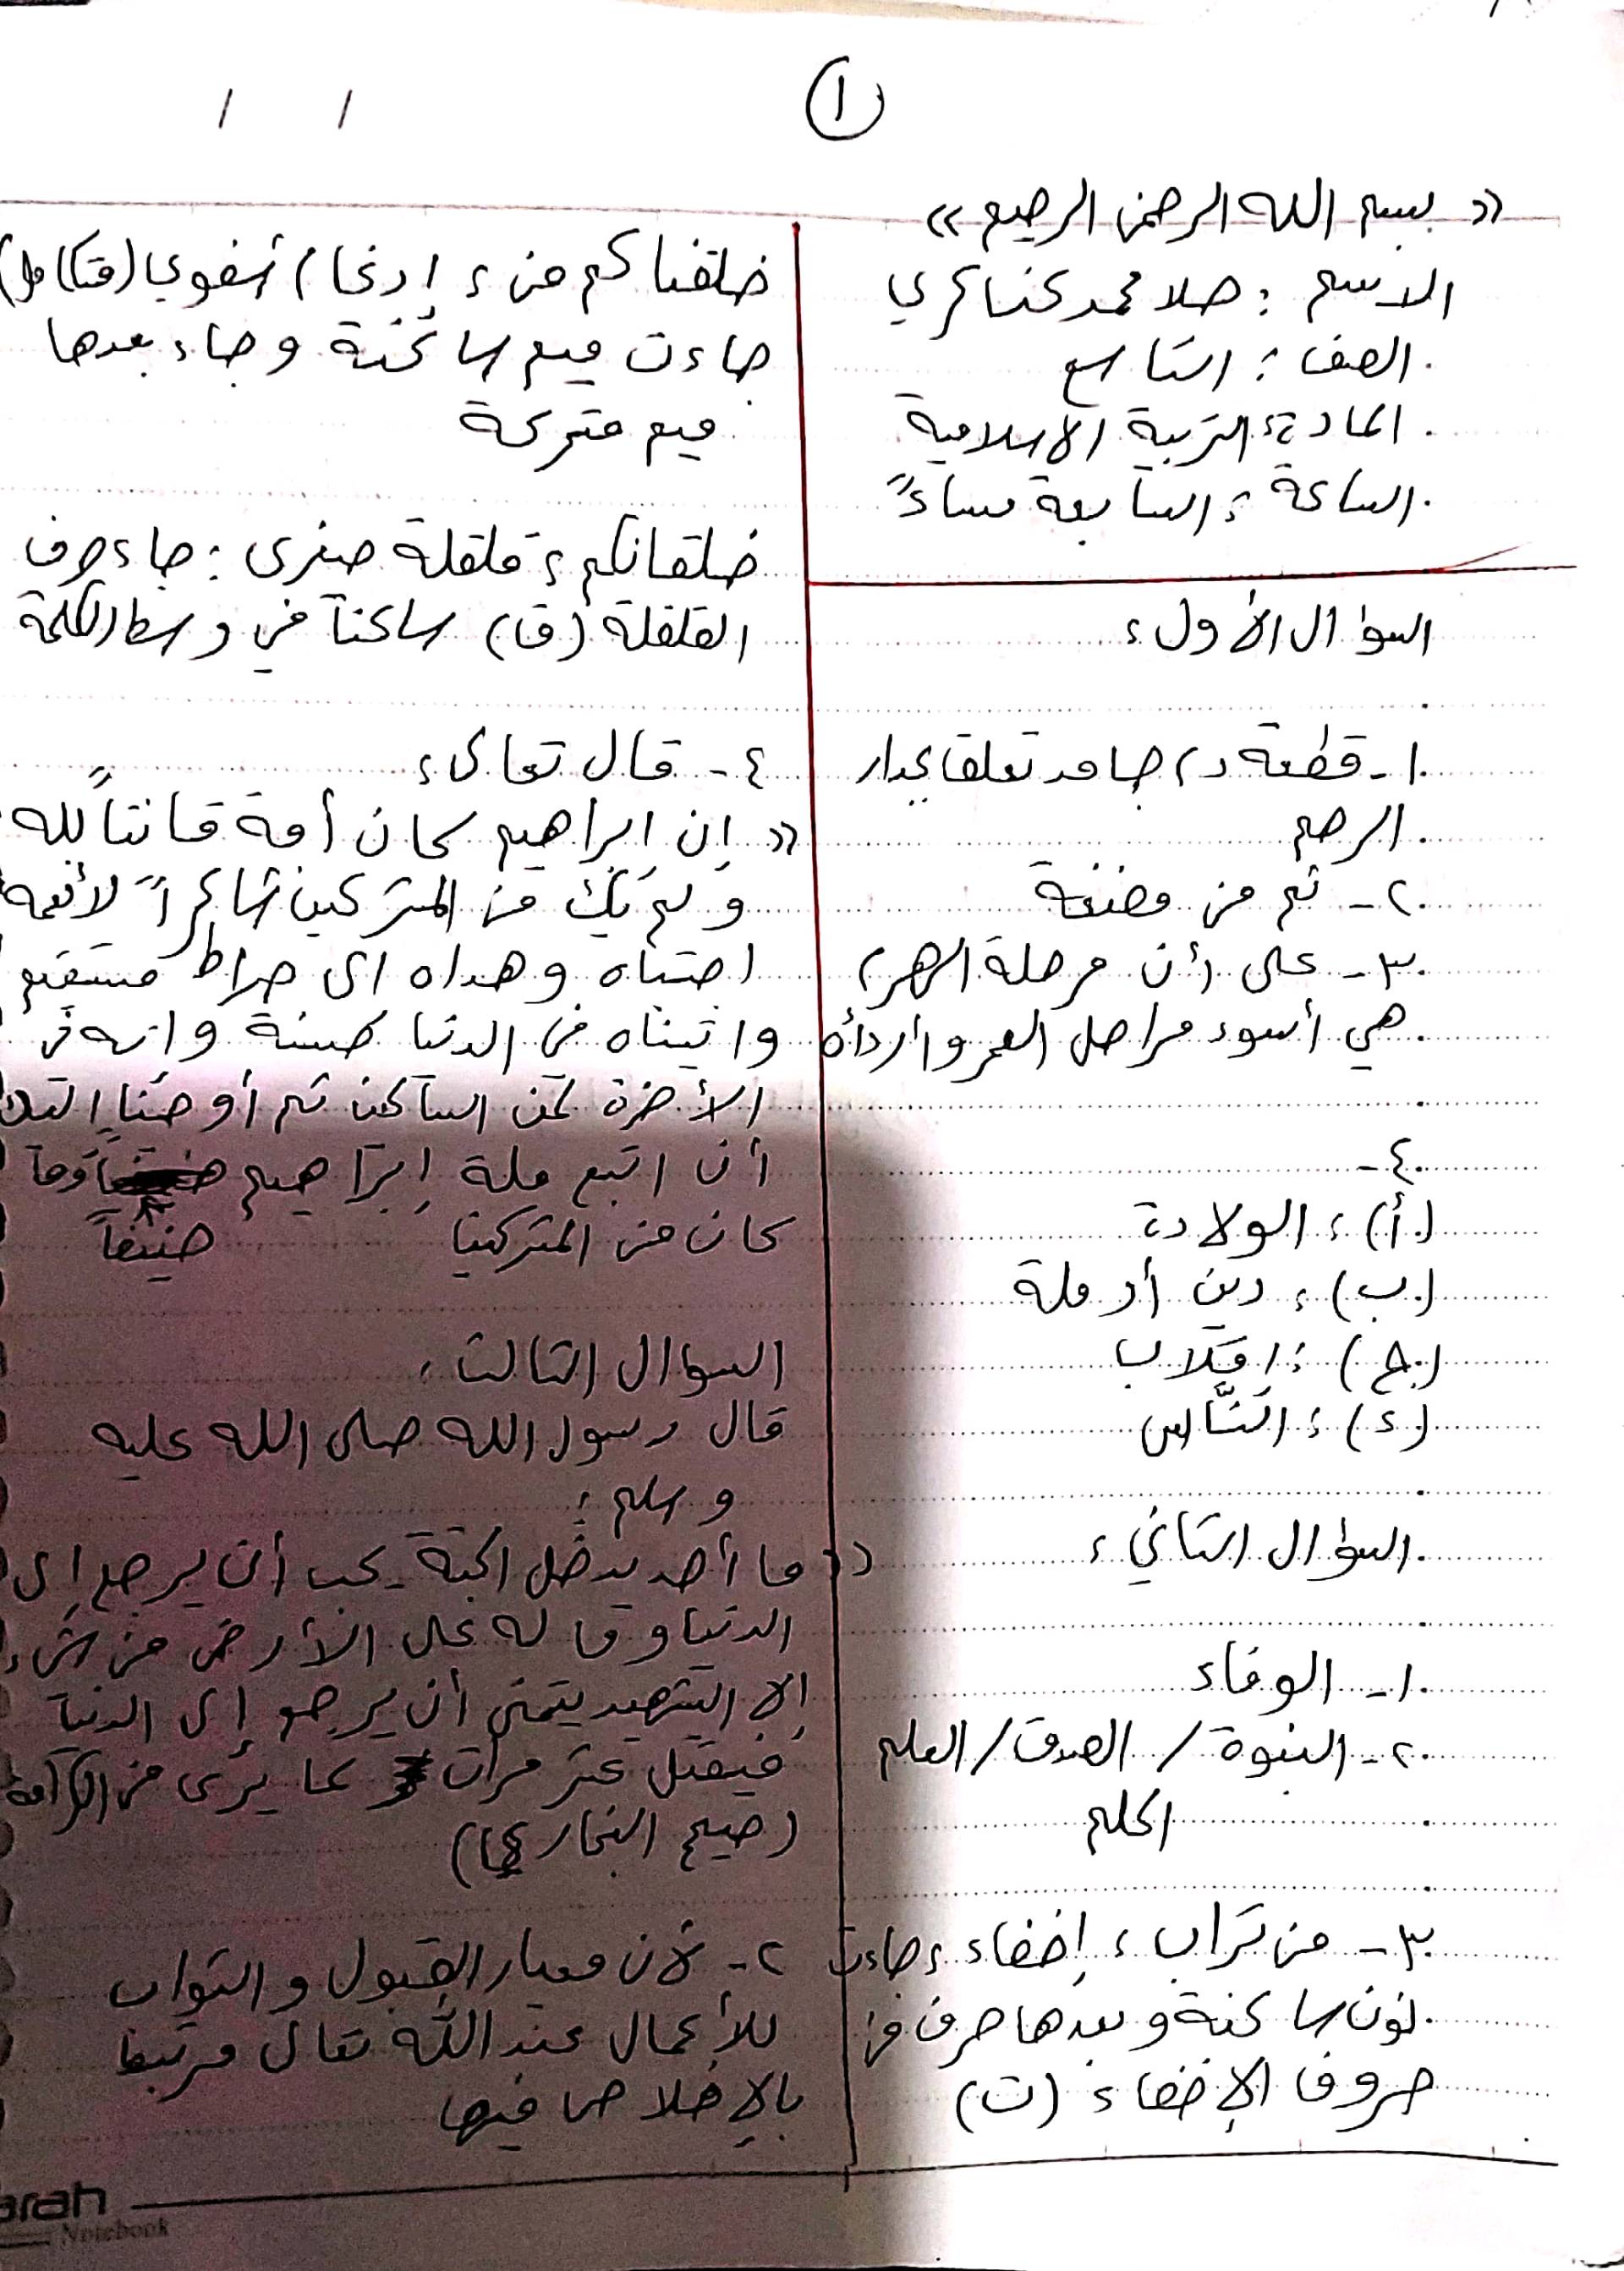 ١
/ /
« بسم الله الرحمن الرحيم »
الاسم : حلا محمد عناكري
الصف : التاسع
المادة : التربية الاسلامية
الساعة : السابعة مساءً
السؤال الأول :
١- قطعة دم جامد تعلق بجدار
الرحم
٢- ثم من مضغة
٣- على أن مرحلة الهرم
هي أسوء مراحل العمر وأردأه
٤-
(أ) : الولادة
(ب) : دين أو ملة
(ج) : إقلاب
(د) : النَّاس
السؤال الثاني :
١- الوفاء
٢- النبوة / الصدق / العلم
الحلم
٣- من تراب : إخفاء : جاءت
نون ساكنة وبعدها حرف من
حروف الإخفاء (ت)
خلقناكم من : إدغام شفوي (متكامل)
جاءت ميم ساكنة وجاء بعدها
ميم متحركة
خلقانكم : قلقلة صغرى : جاء حرف
القلقلة (ق) ساكناً في وسط الكلمة
٤- قال تعالى :
« إن ابراهيم كان أمة قانتاً لله
ولم يَكُ من المشركين شاكراً لأنعمه
اجتباه وهداه الى صراط مستقيم
واتيناه في الدنيا حسنة وانه في
الأخرة لمن
ثم أوحينا إليك
أن اتبع ملة إبراهيم وما
حنيفاً
كان من المشركين
السؤال الثالث :
قال رسول الله صلى الله عليه
وسلم :
(( ما أحد يدخل الجنة يحب أن يرجع إلى
الدنيا و ما له على الأرض من شيء
إلا الشهيد يتمنى أن يرجع إلى الدنيا
فيقتل عشر مرات لما يرى من الكرامة
(صحيح البخاري)
٢- لأن معيار القبول و الثواب
للأعمال عند الله تعالى مرتبط
بالإخلاص فيها
arah
Notebook